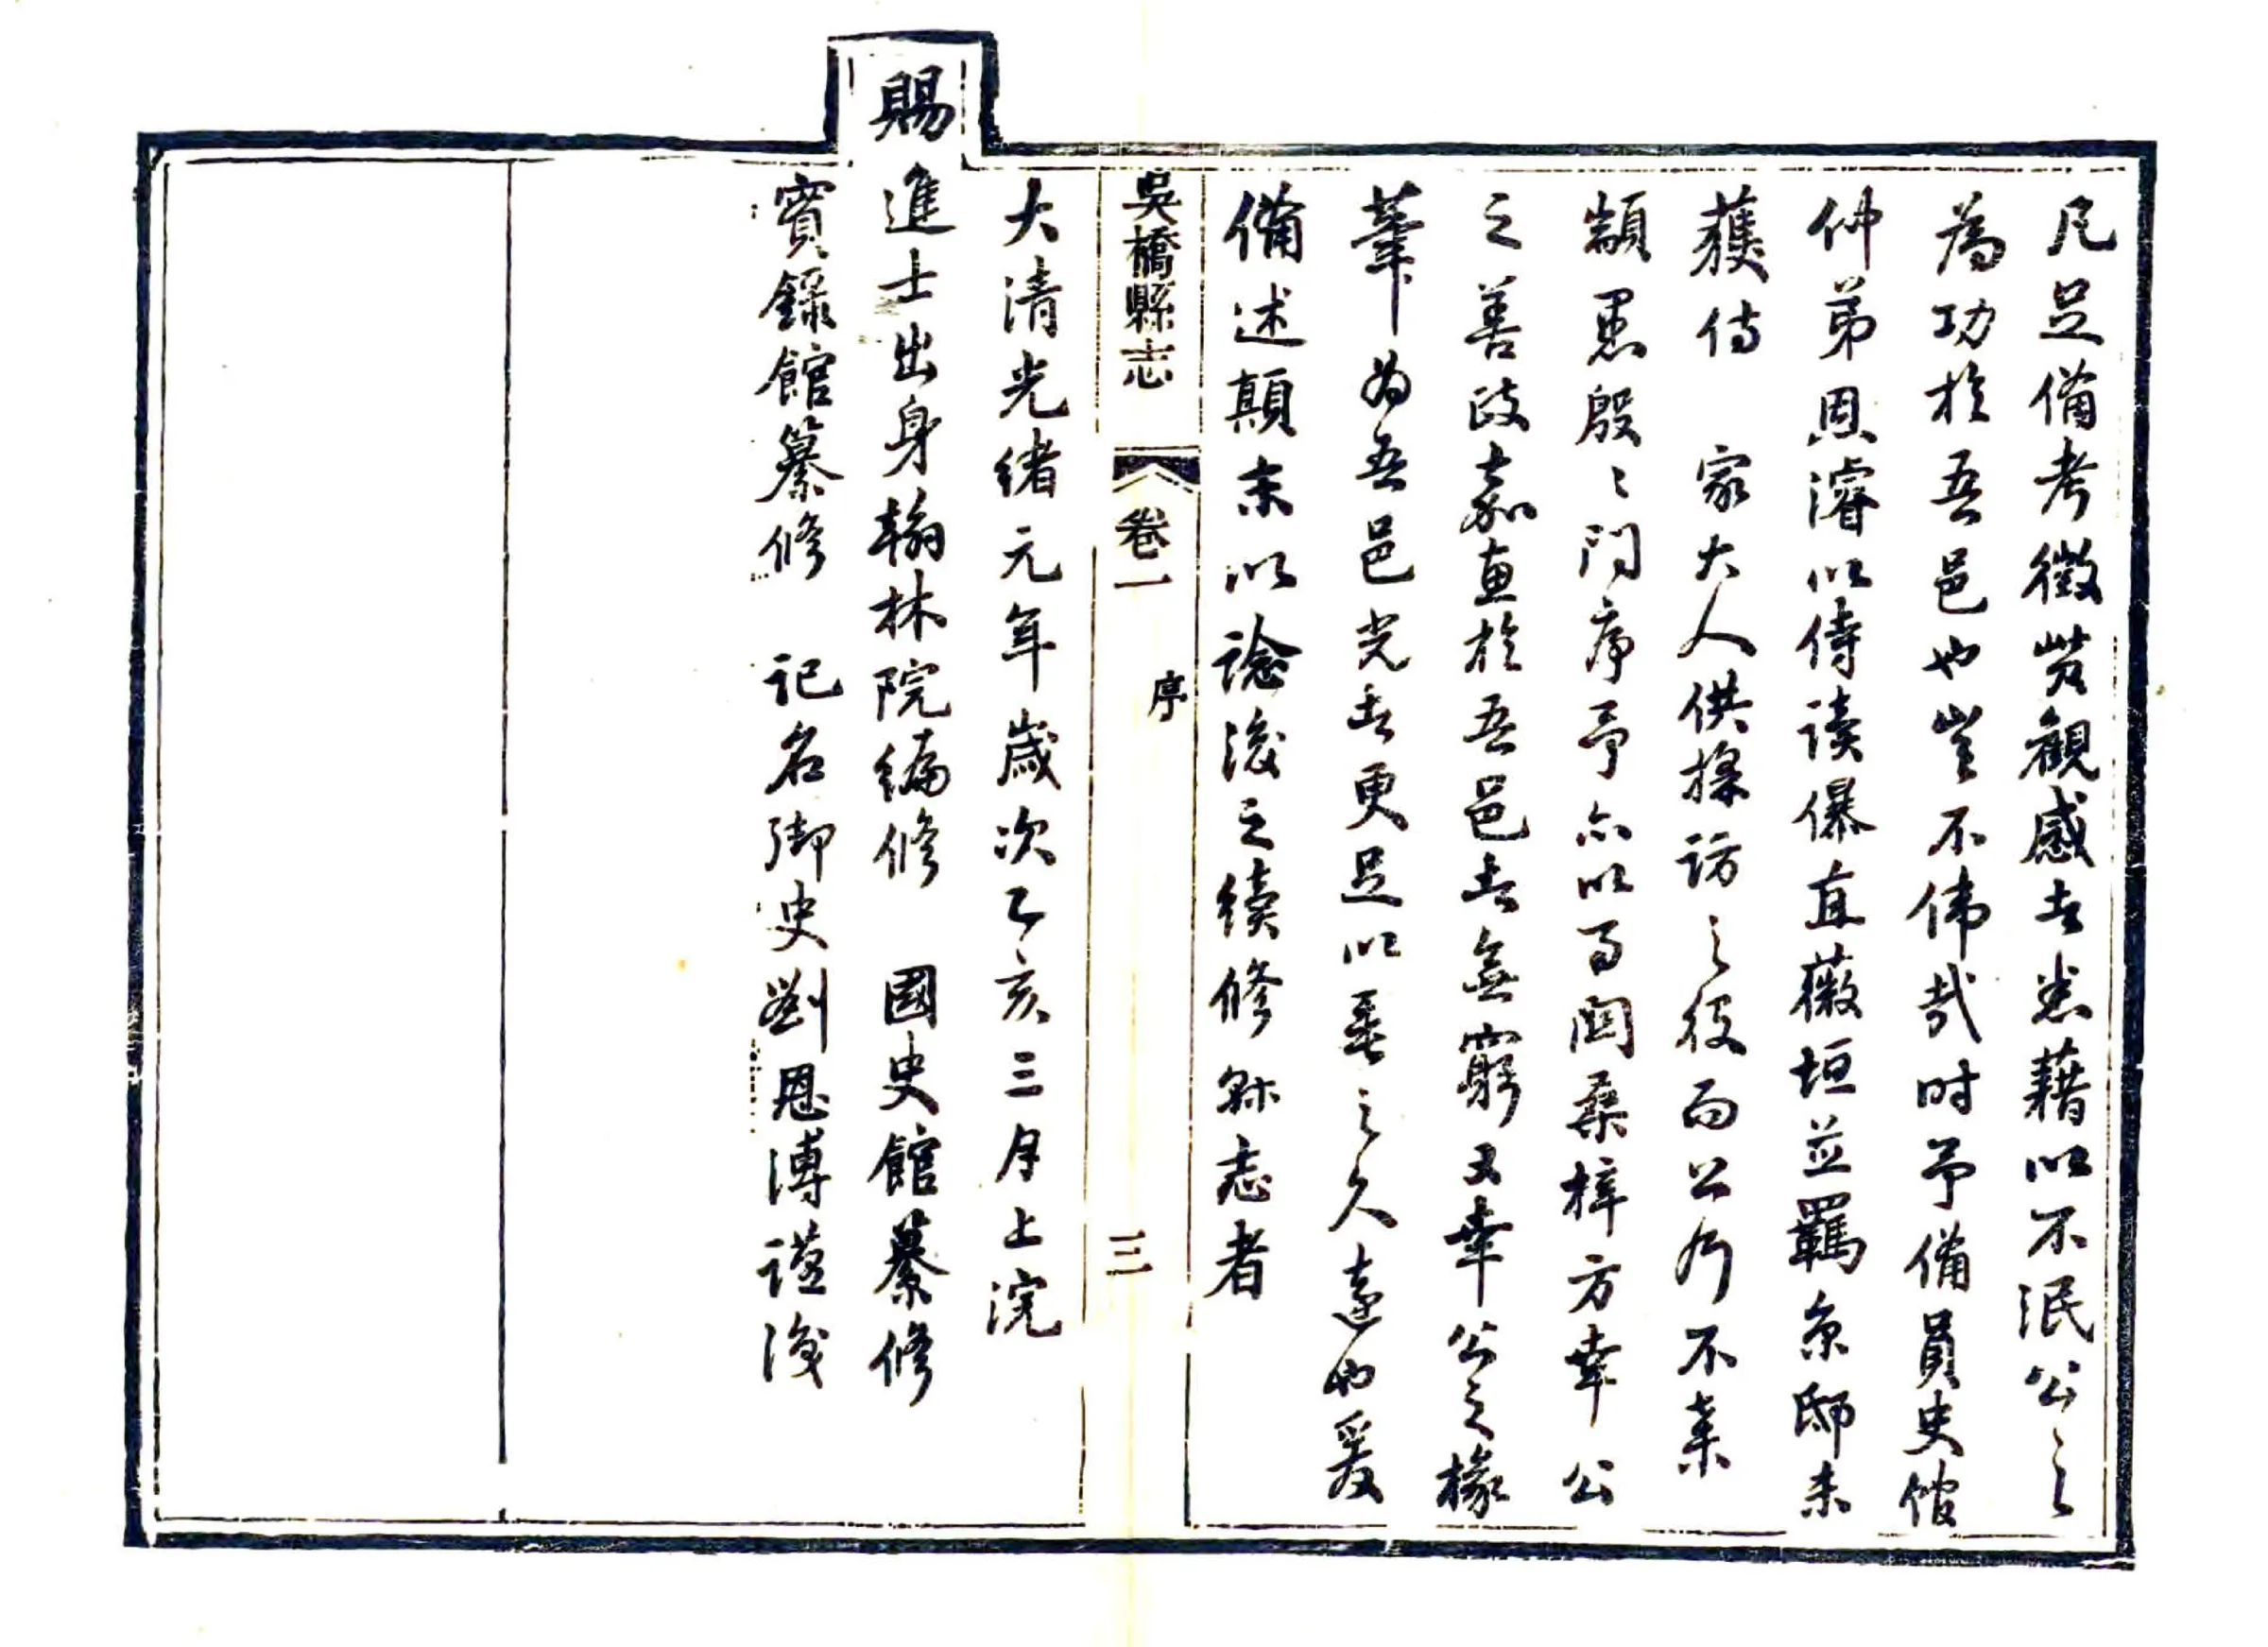 凡足備考徵資觀感者悉藉以不泯公之
為功於吾邑也豈不偉哉時予備員史館
仲弟恩濬以侍讀儤直薇垣並羈京邸未
獲侍　家大人供採訪之役而公乃不棄
顓愚殷殷問序予亦以事関桑梓方幸公
之善政嘉惠於吾邑者無窮又幸公之椽
筆為吾邑光者更足以垂之久遠也爰
備述顛末以諗後之續修縣志者
吳橋縣志　卷一　序　三
大清光緒元年歲次乙亥三月上浣
賜進士出身翰林院編修　國史館纂修
實錄館纂修　記名御史劉恩溥謹後